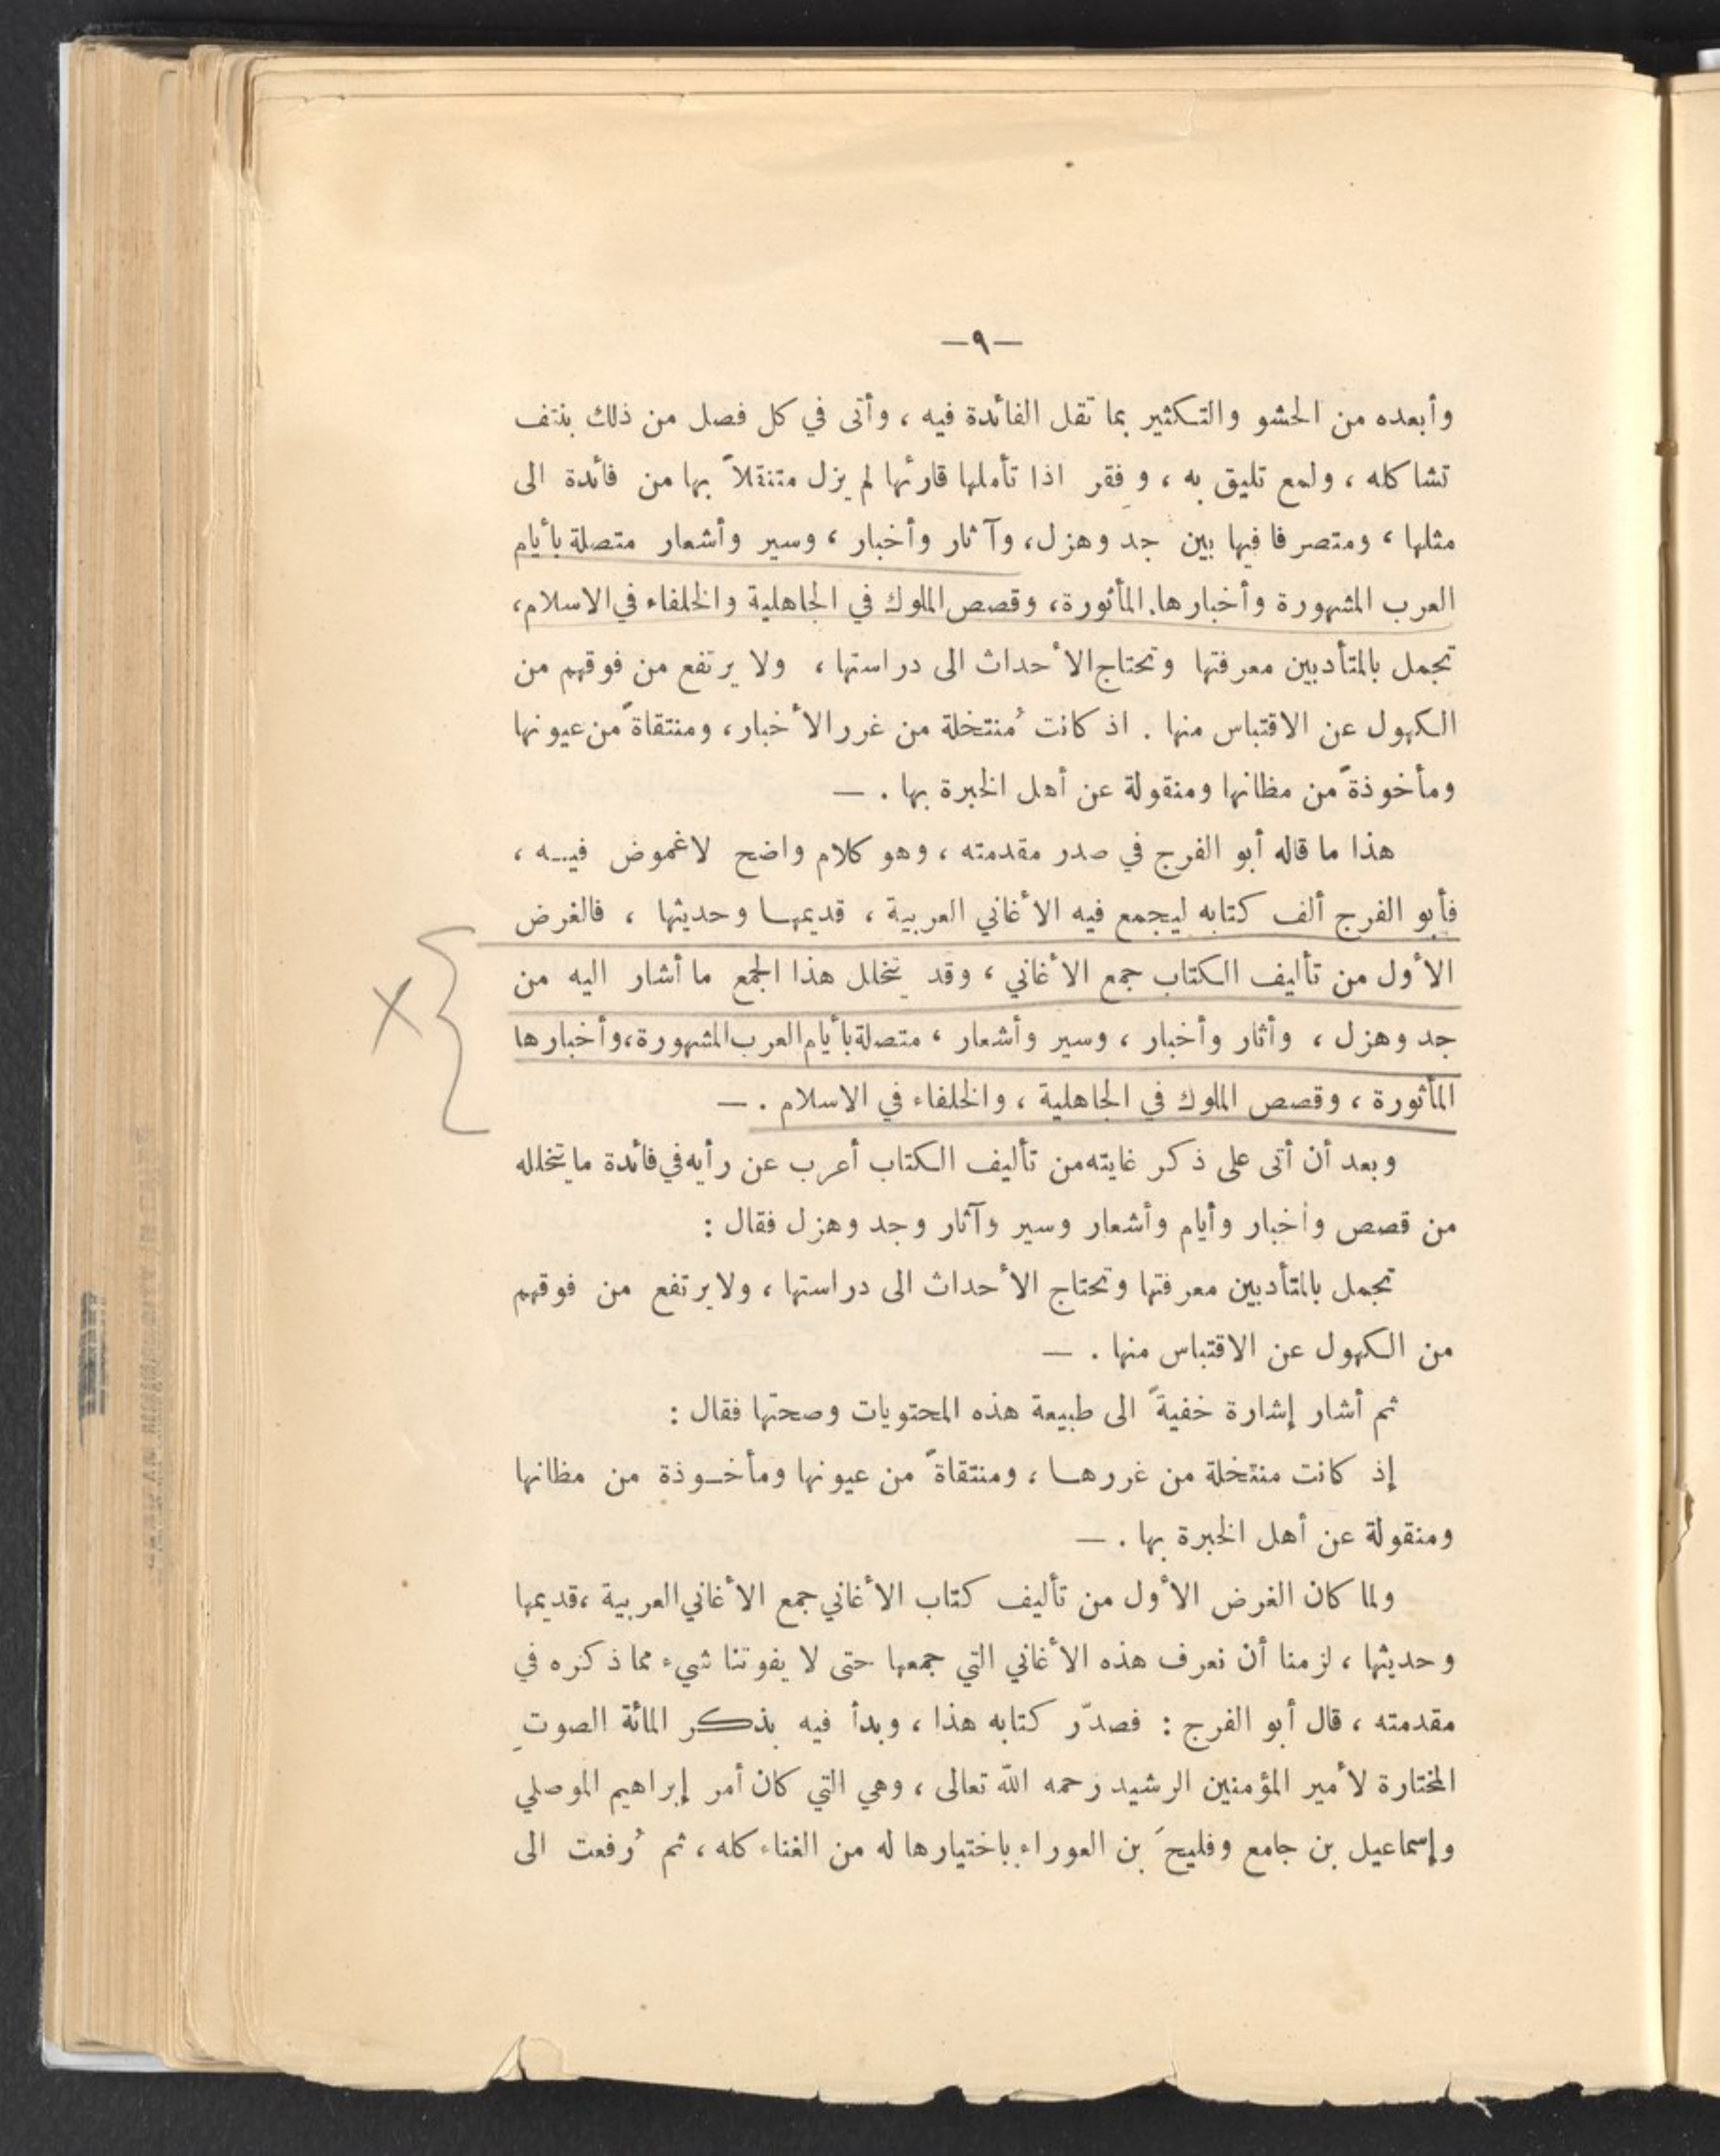 —٩—
وأبعده من الحشو والتكثير بما تقل الفائدة فيه ، وأتى في كل فصل من ذلك بنتف
تشاكله ، ولمع تليق به ، وفِقر اذا تأملها قارئها لم يزل متنقلاً بها من فائدة الى
مثلها ، ومتصرفا فيها بين جد وهزل، وآثار وأخبار ، وسير وأشعار متصلة بأيام
العرب المشهورة وأخبارها المأثورة، وقصص الملوك في الجاهلية والخلفاء في الاسلام،
تجمل بالمتأدبين معرفتها وتحتاج الأحداث الى دراستها ، ولا يرتفع من فوقهم من
الكهول عن الاقتباس منها . اذ كانت مُنتخلة من غرر الأخبار، ومنتقاةً من عيونها
ومأخوذةً من مظانها ومنقولة عن أهل الخبرة بها . —
هذا ما قاله أبو الفرج في صدر مقدمته ، وهو كلام واضح لاغموض فيه ،
فأبو الفرج ألف كتابه ليجمع فيه الأغاني العربية ، قديمها وحديثها ، فالغرض
الأول من تأليف الكتاب جمع الأغاني ، وقد يتخلل هذا الجمع ما أشار اليه من
جد وهزل ، وأثار وأخبار ، وسير وأشعار ، متصلة بأيام العرب المشهورة،وأخبارها
المأثورة ، وقصص الملوك في الجاهلية ، والخلفاء في الاسلام . —
وبعد أن أتى على ذكر غايته من تأليف الكتاب أعرب عن رأيه في فائدة ما يتخلله
من قصص وأخبار وأيام وأشعار وسير وآثار وجد وهزل فقال :
تجمل بالمتأدبين معرفتها وتحتاج الأحداث الى دراستها ، ولا يرتفع من فوقهم
من الكهول عن الاقتباس منها . —
ثم أشار إشارة خفيةً الى طبيعة هذه المحتويات وصحتها فقال :
إذ كانت منتخلة من غررها ، ومنتقاةً من عيونها ومأخوذة من مظانها
ومنقولة عن أهل الخبرة بها . —
ولما كان الغرض الأول من تأليف كتاب الأغاني جمع الأغاني العربية ،قديمها
وحديثها ، لزمنا أن نعرف هذه الأغاني التي جمعها حتى لا يفوتنا شيء مما ذكره في
مقدمته ، قال أبو الفرج : فصدّر كتابه هذا ، وبدأ فيه بذكر المائة الصوتِ
المختارة لأمير المؤمنين الرشيد رحمه الله تعالى ، وهي التي كان أمر إبراهيم الموصلي
وإسماعيل بن جامع وفليحَ بن العوراء باختيارها له من الغناء كله ، ثم رُفعت الى